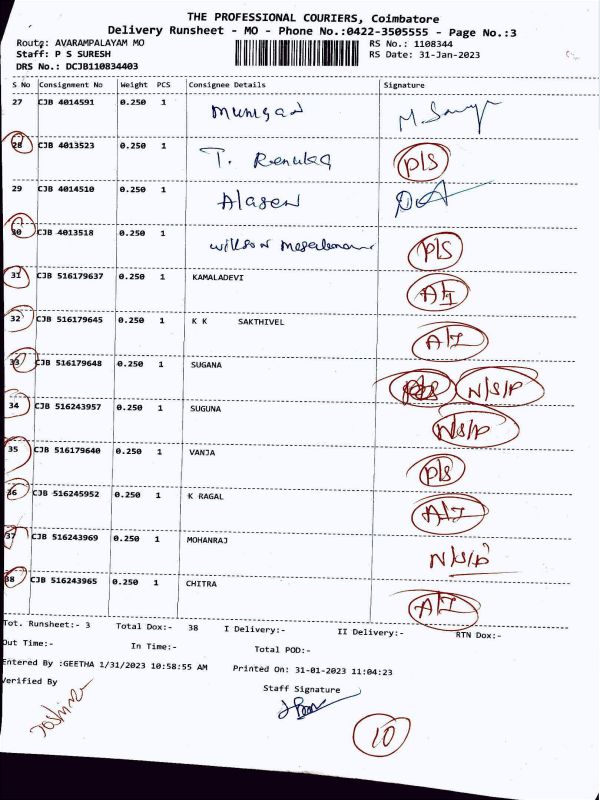 THE PROFESSIONAL COURIERS, Coimbatore
Delivery Runsheet - MO - Phone No.:0422-3505555 - Page No.:3
Route: AVARAMPALAYAM MO RS No.: 1108344
Staff: P S SURESH RS Date: 31-Jan-2023
DRS No.: DCJB110834403
S No Consignment No Weight PCS Consignee Details Signature
27 CJB 4014591 0.250 1
28 CJB 4013523 0.250 1 T. Renuka P/S
29 CJB 4014510 0.250 1
30 CJB 4013518 0.250 1 P/S
31 CJB 516179637 0.250 1 KAMALADEVI A/I
32 CJB 516179645 0.250 1 K K SAKTHIVEL A/I
33 CJB 516179648 0.250 1 SUGANA N/S/P
34 CJB 516243957 0.250 1 SUGUNA N/S/P
35 CJB 516179640 0.250 1 VANJA P/S
36 CJB 516245952 0.250 1 K RAGAL A/I
37 CJB 516243969 0.250 1 MOHANRAJ N/S/P
38 CJB 516243965 0.250 1 CHITRA A/I
Tot. Runsheet:- 3 Total Dox:- 38 I Delivery:- II Delivery:- RTN Dox:-
Out Time:- In Time:- Total POD:-
Entered By :GEETHA 1/31/2023 10:58:55 AM Printed On: 31-01-2023 11:04:23
Verified By Staff Signature
10